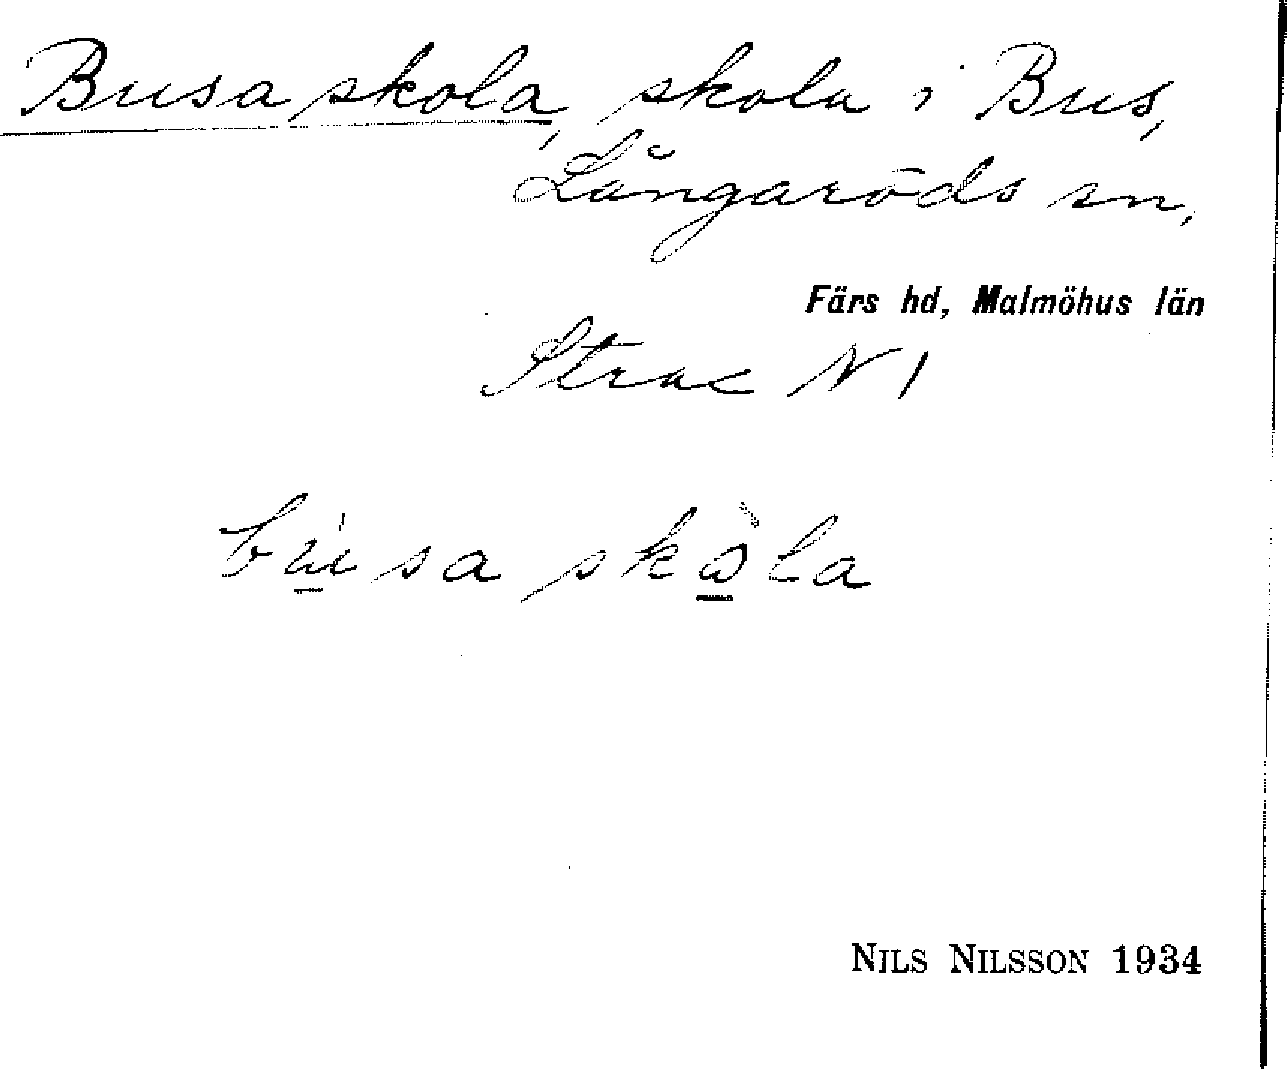 Busaskola, skola i Bus,
Långaröds sn,
Färs hd, Malmöhus län
Strac N 1
bú̲sa skὼ̲la
NILS NILSSON 1934